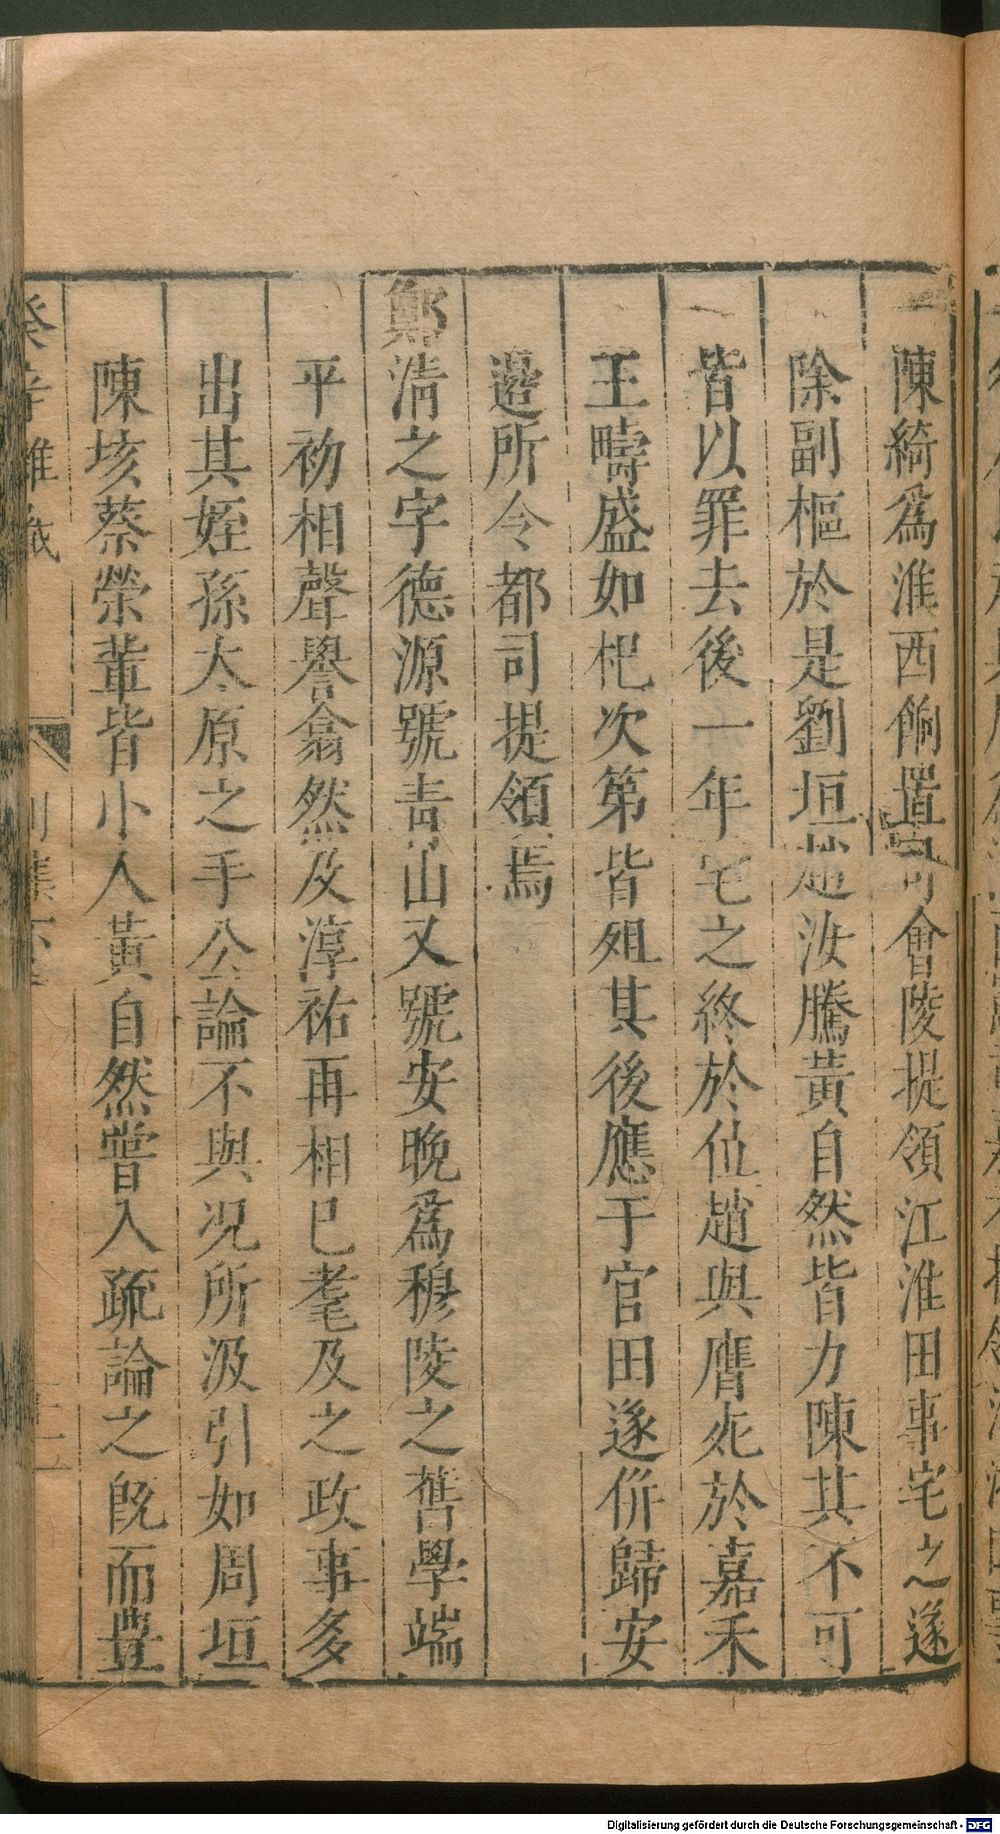 陳綺爲淮西餉置司會陵提領江淮田事宅之遂
除副樞於是劉垣趙汝騰黃自然皆力陳其不可
皆以罪去後一年宅之終於位趙與膺死於嘉禾
王疇盛如杞次第皆殂其後應于官田遂併歸安
邉所令都司提領焉
鄭清之字德源號青山又號安晚爲穆陵之舊學端
平初相聲譽翕然及淳祐再相已耄及之政事多
出其姪孫太原之手公論不與况所汲引如周垣
陳垓蔡榮輩皆小人黃自然嘗入疏論之旣而豊
癸辛雜識
別集下
Digitalisierung gefördert durch die Deutsche Forschungsgemeinschaft - DFG